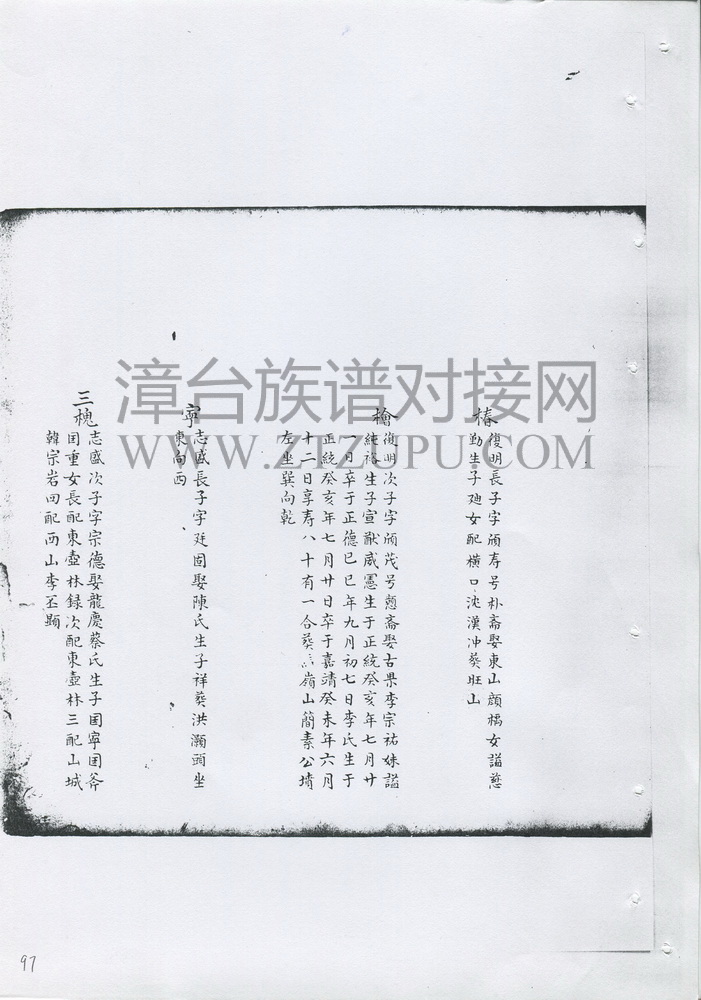 椿復明長子字頎存号朴斋娶東山顔橘女謚慈
勤生子廸女配横口沈漢冲葵旺山
檜復明次子字頎茂号慤斋娶古杲李宗祐妹謚
純裕生子宣猷威憲生于正統癸亥年七月廿
一日卒于正德已巳年九月初七日李氏生于
正統癸亥年七月廿日卒于嘉靖癸未年六月
十二日享寿八十有一合葵嶺山簡素公墳
左坐巽向乾
寧志盛長子字廷固娶陳氏生子祥葵洪瀨頭坐
東向西
三槐志盛次子字宗德娶龍慶蔡氏生子国寧国斧
国重女長配東壺林録次配東壺林三配山城
韓宗岩四配西山李丕顯
漳台族谱对接网
WWW.ZTZUPU.COM
97